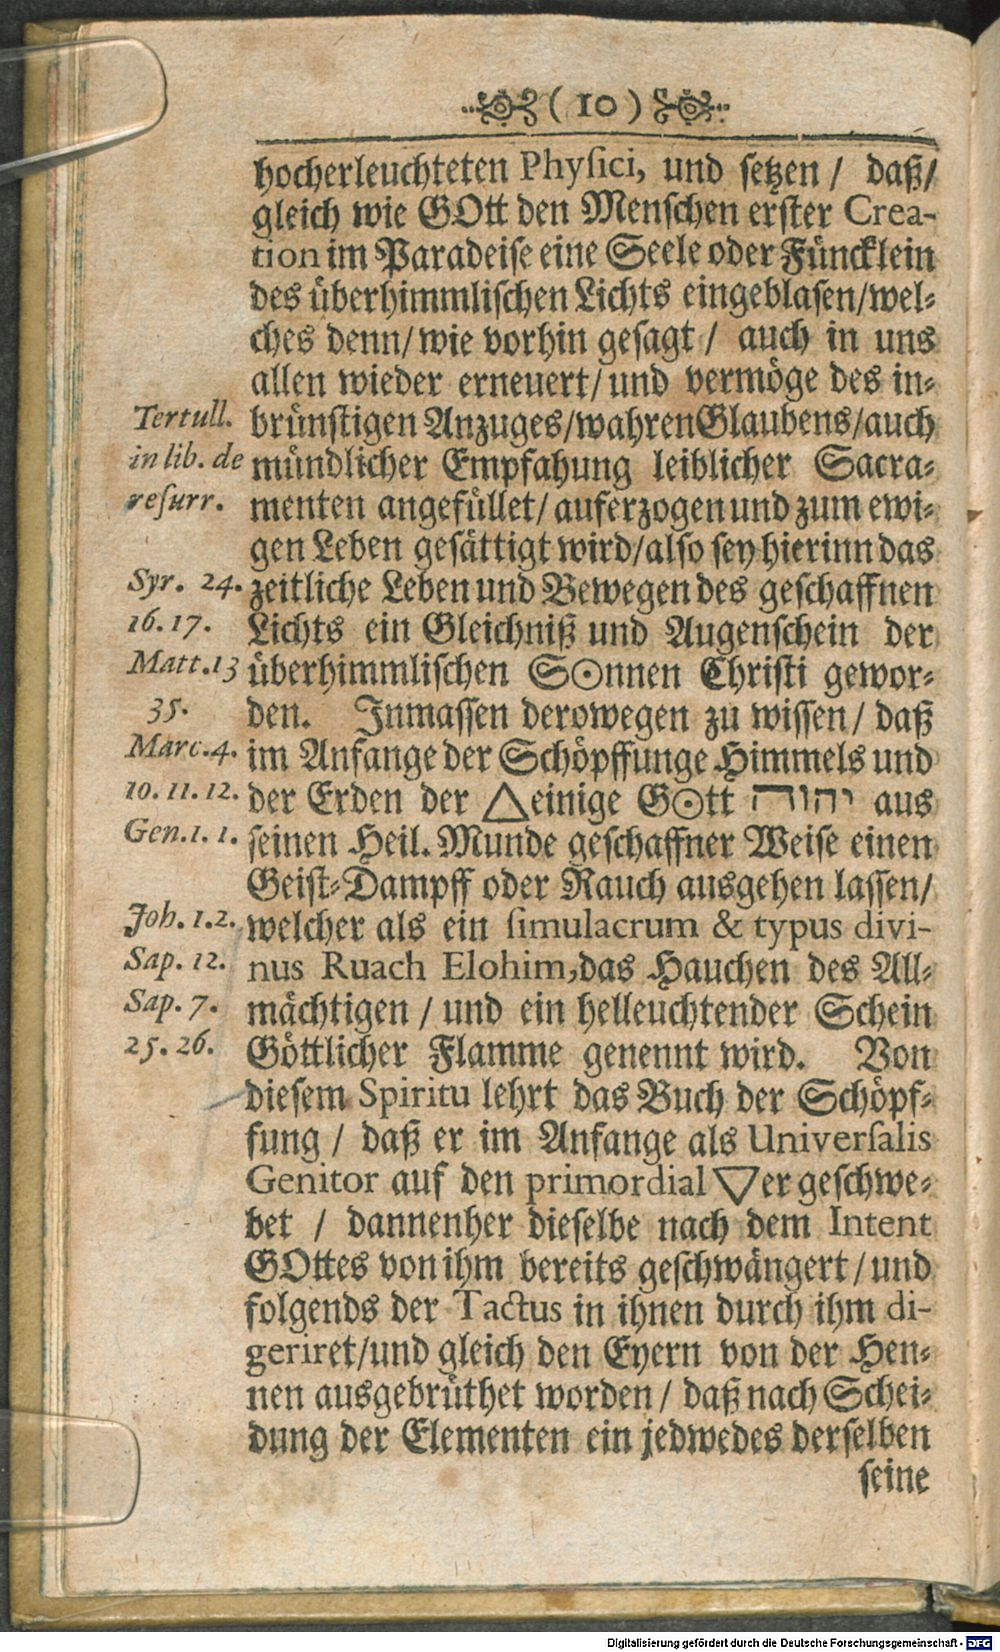 ( 10 )
hocherleuchteten Physici, und setzen / daß/
gleich wie GOtt den Menschen erster Crea-
tion im Paradeise eine Seele oder Füncklein
des überhimmlischen Lichts eingeblasen/wel-
ches denn/wie vorhin gesagt / auch in uns
allen wieder erneuert/und vermöge des in-
Tertull. brünstigen Anzuges/wahren Glaubens/auch
in lib. de mündlicher Empfahung leiblicher Sacra-
resurr. menten angefüllet/auferzogen und zum ewi-
gen Leben gesättigt wird/also sey hierinn das
Syr. 24. zeitliche Leben und Bewegen des geschaffnen
16. 17. Lichts ein Gleichniß und Augenschein der
Matt. 13 überhimmlischen S☉nnen Christi gewor-
35. den. Inmassen derowegen zu wissen / daß
Marc. 4. im Anfange der Schöpffunge Himmels und
10. 11. 12. der Erden der △einige G☉tt יהוה aus
Gen. 1. 1. seinen Heil. Munde geschaffner Weise einen
Geist-Dampff oder Rauch ausgehen lassen/
Joh. 1. 2. welcher als ein simulacrum & typus divi-
Sap. 12. nus Ruach Elohim, das Hauchen des All-
Sap. 7. mächtigen / und ein helleuchtender Schein
25. 26. Göttlicher Flamme genennt wird. Von
diesem Spiritu lehrt das Buch der Schöpf-
fung / daß er im Anfange als Universalis
Genitor auf den primordial ▽er geschwe-
bet / dannenher dieselbe nach dem Intent
GOttes von ihm bereits geschwängert/und
folgends der Tactus in ihnen durch ihm di-
geriret/und gleich den Eyern von der Hen-
nen ausgebrüthet worden / daß nach Schei-
dung der Elementen ein jedwedes derselben
seine
Digitalisierung gefördert durch die Deutsche Forschungsgemeinschaft - DFG